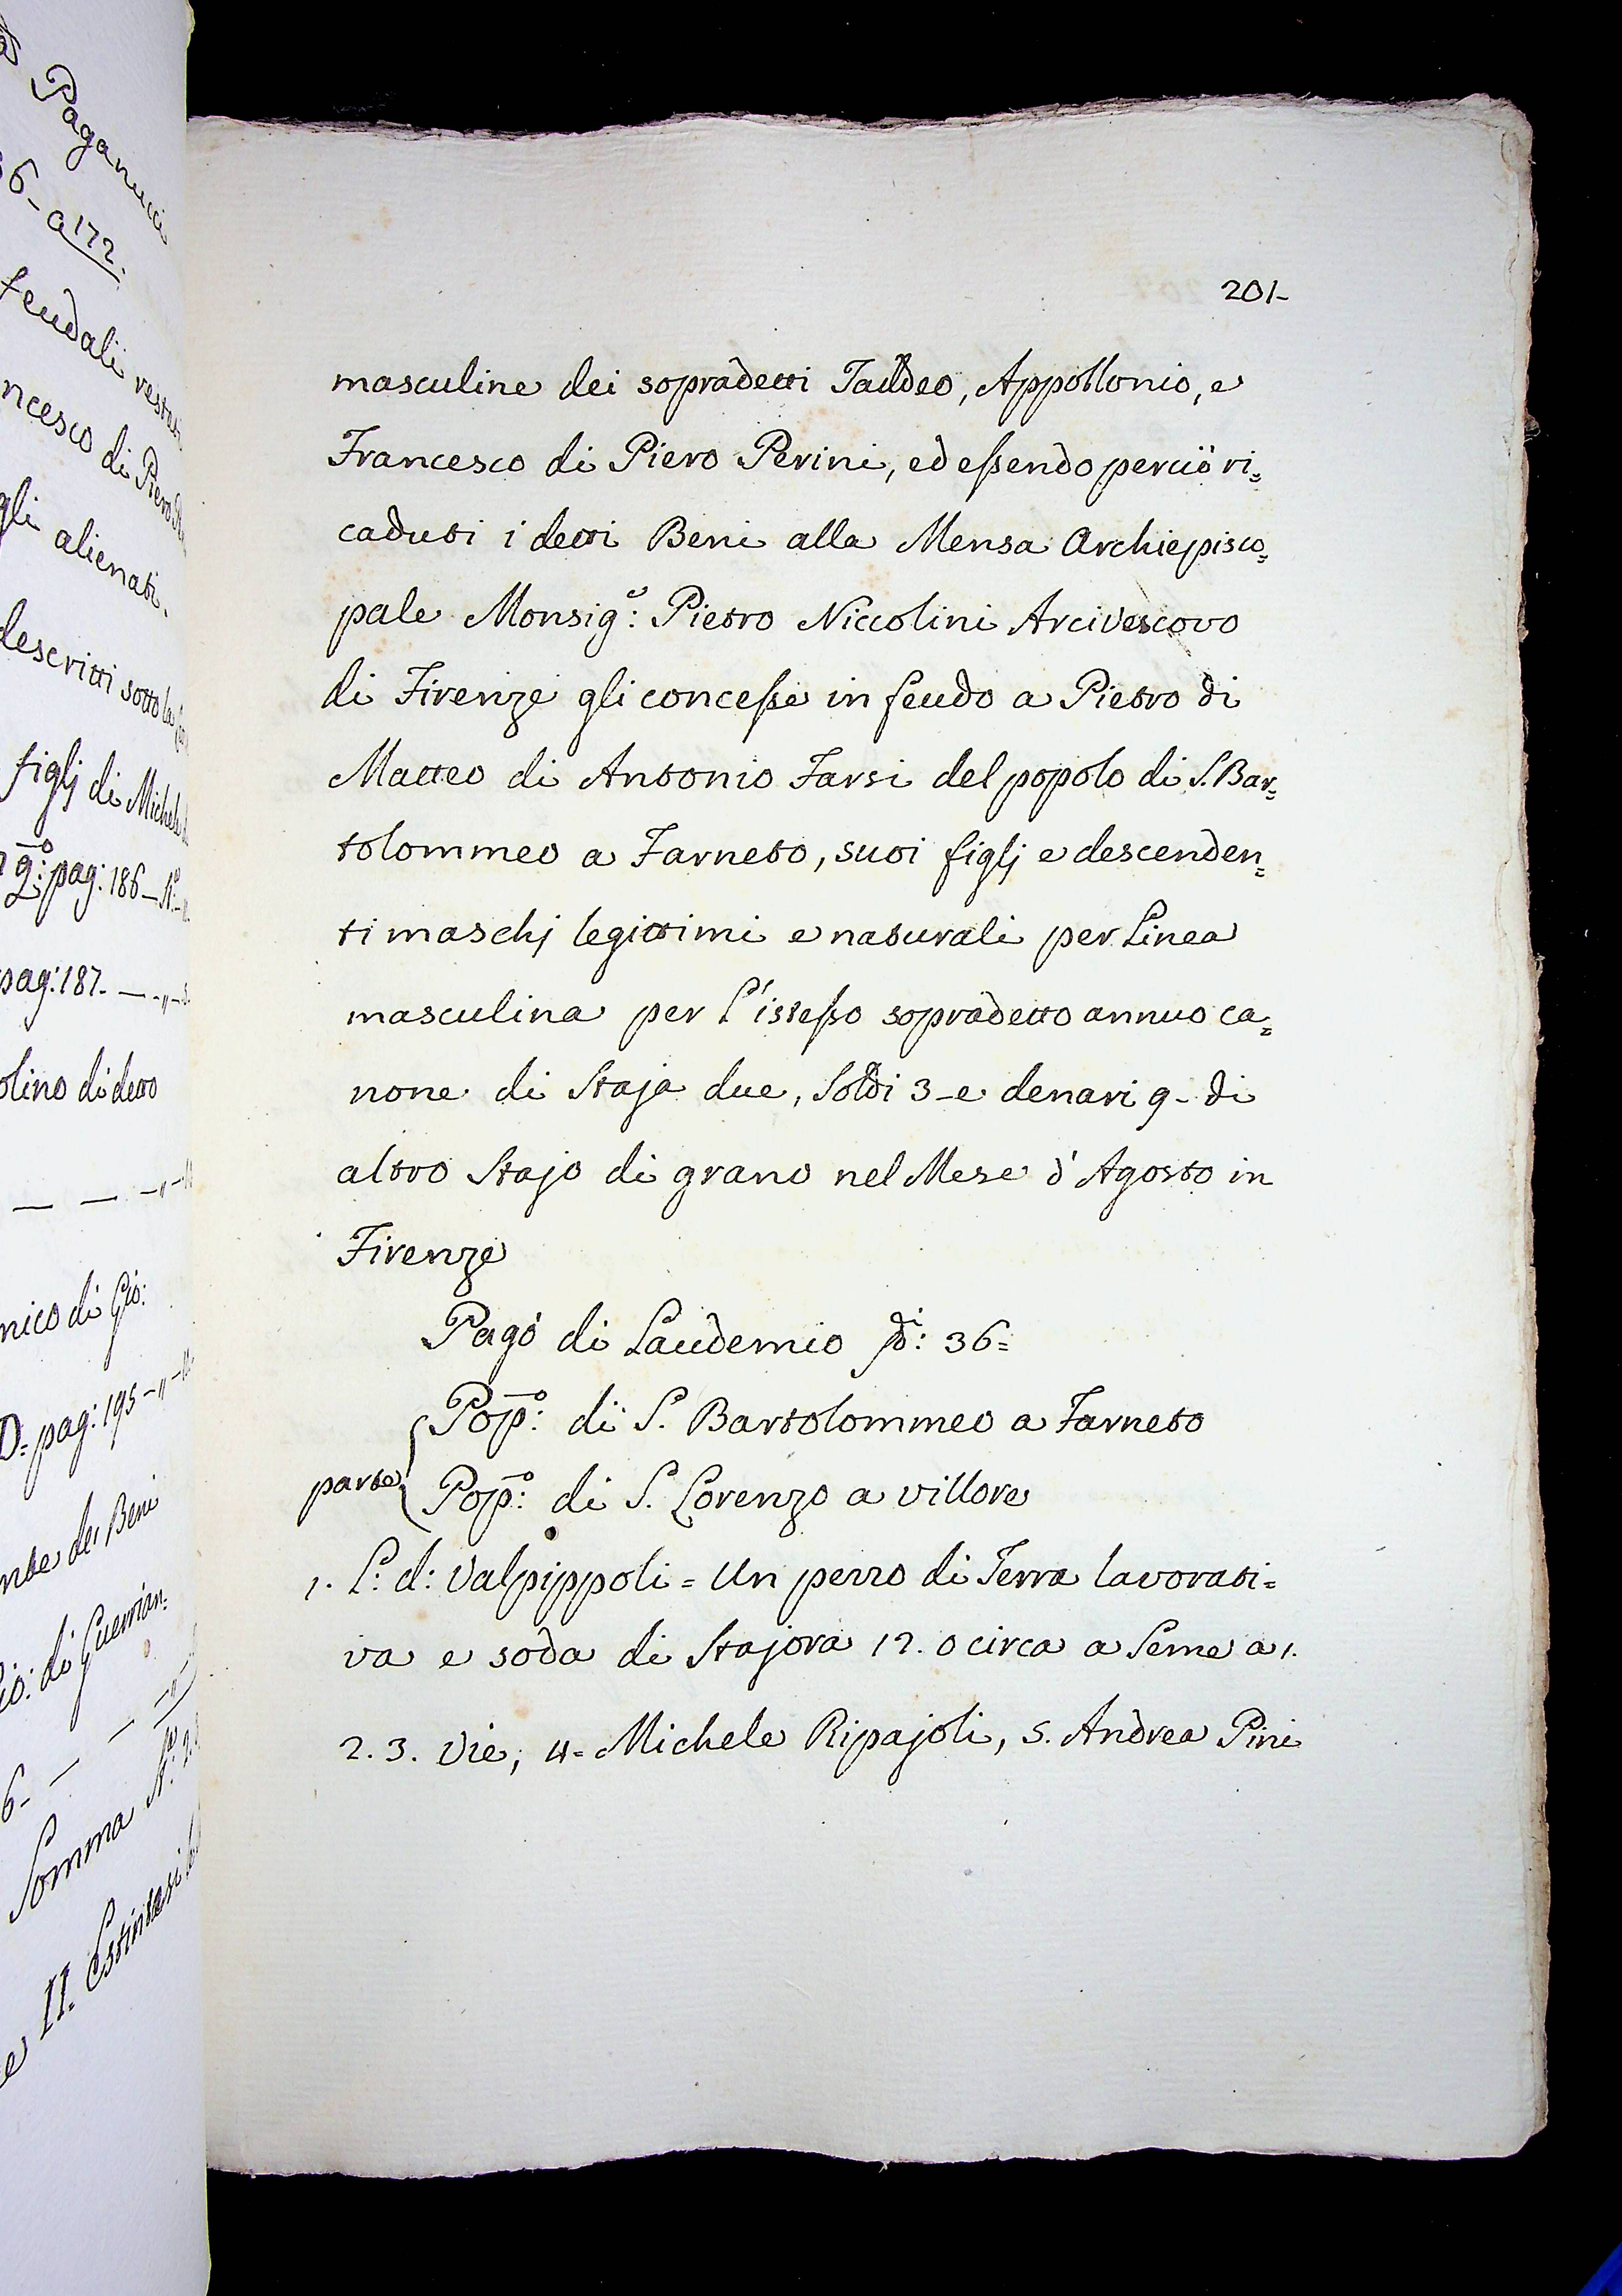 Paganucci
6_ a 172.
feudali
ncesco di Piero
gli alienati.
descritti sotto la
figlj di Michele
pag: 186_
pag: 187.
olino di detto
nico di Gio:
D= pag: 195
nte dei Beni
io: di
6_
Somma N.º
e II. Estintasi
201_
masculine dei sopradetti Taddeo, Appollonio, e
Francesco di Piero Perini, ed essendo perciò ri=
caduti i detti Beni alla Mensa Archiepisco=
pale Monsig.e: Pietro Niccolini Arcivescovo
di Firenze gli concesse in feudo a Pietro di
Matteo di Antonio Farsi del popolo di S. Bar=
tolommeo a Farneto, suoi figlj e descenden=
ti maschj legittimi e naturali per Linea
masculina per l'istesso sopradetto annuo ca=
none di Staja due, Soldi 3_ e denari 9_ di
altro Stajo di grano nel Mese d'Agosto in
Firenze
Pagò di Laudemio 36=
Pop.o: di S. Bartolommeo a Farneto
parte Pop.o: di S. Lorenzo a villore
1. L: d: Valpippoli = Un pezzo di Terra lavorati=
va e soda di Stajora 12. o circa a Seme a 1.
2. 3. Vie, 4= Michele Ripajoli, 5. Andrea Pini